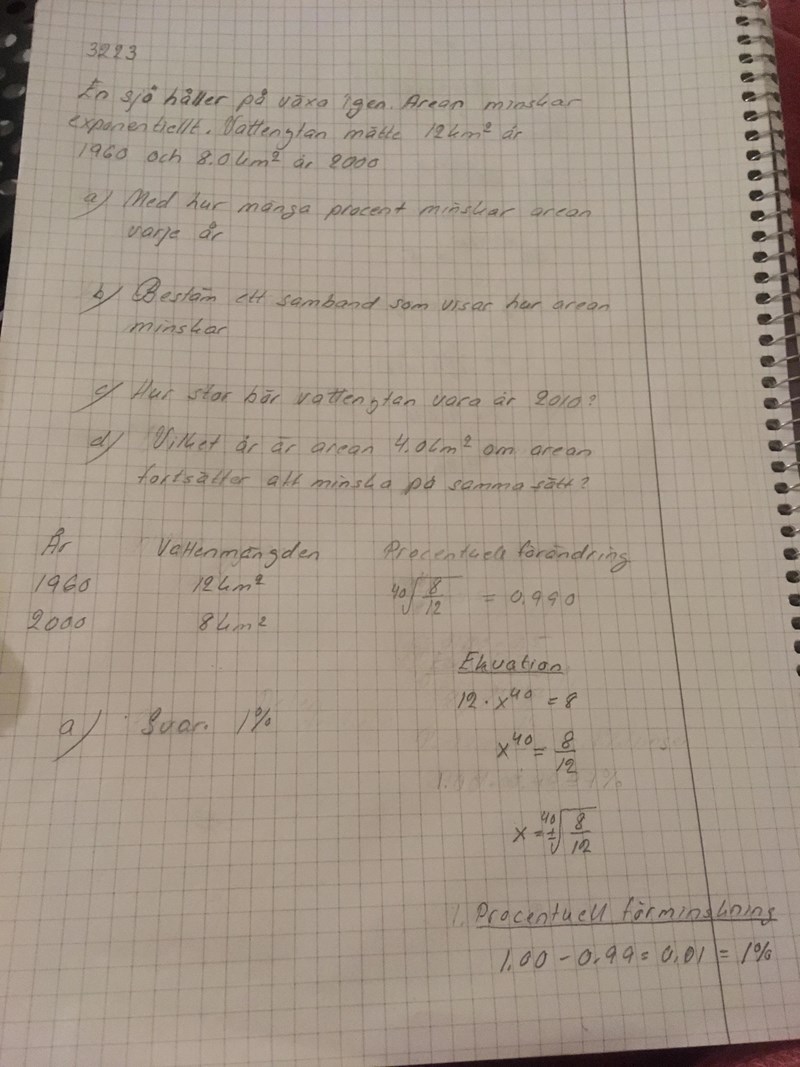 3223
En sjö håller på växa igen. Arean minskar
exponentiellt. Vattenytan mätte 12 km² år
1960 och 8.0 km² år 2000
a) Med hur många procent minskar arean
varje år
b) Bestäm ett samband som visar hur arean
minskar
c) Hur stor bör vattenytan vara år 2010?
d) Vilket år är arean 4.0 km² om arean
fortsätter att minska på samma sätt?
År Vattenmängden Procentuell förändring
1960 12 km² ⁴⁰√(8/12) = 0,990
2000 8 km²
Ekvation
12 · x⁴⁰ = 8
a) Svar. 1%
x⁴⁰ = 8/12
x = ±⁴⁰√(8/12)
Procentuell förminskning
1,00 - 0,99 = 0,01 = 1%